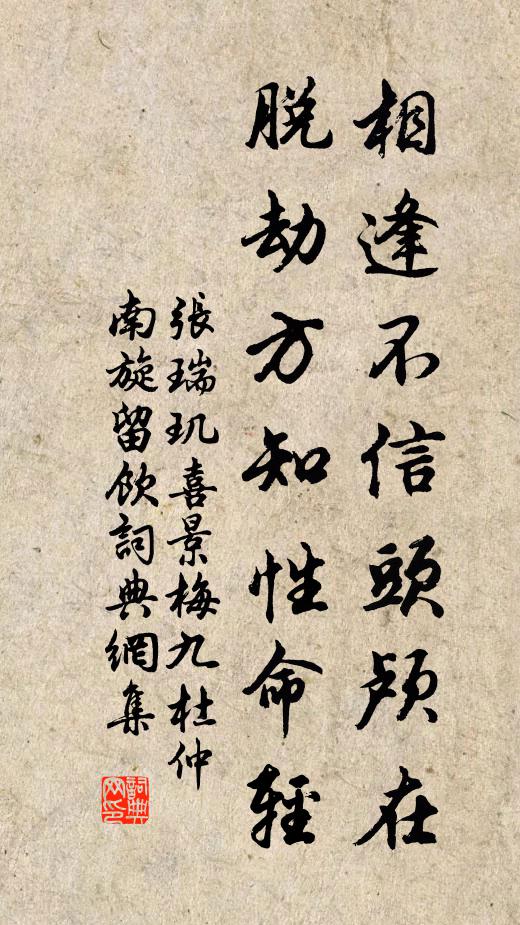 相逢不信頭顱在
脫劫方知性命輕
張瑞璣喜景梅九杜仲
南旋留飲詞典網集
詞典
网印